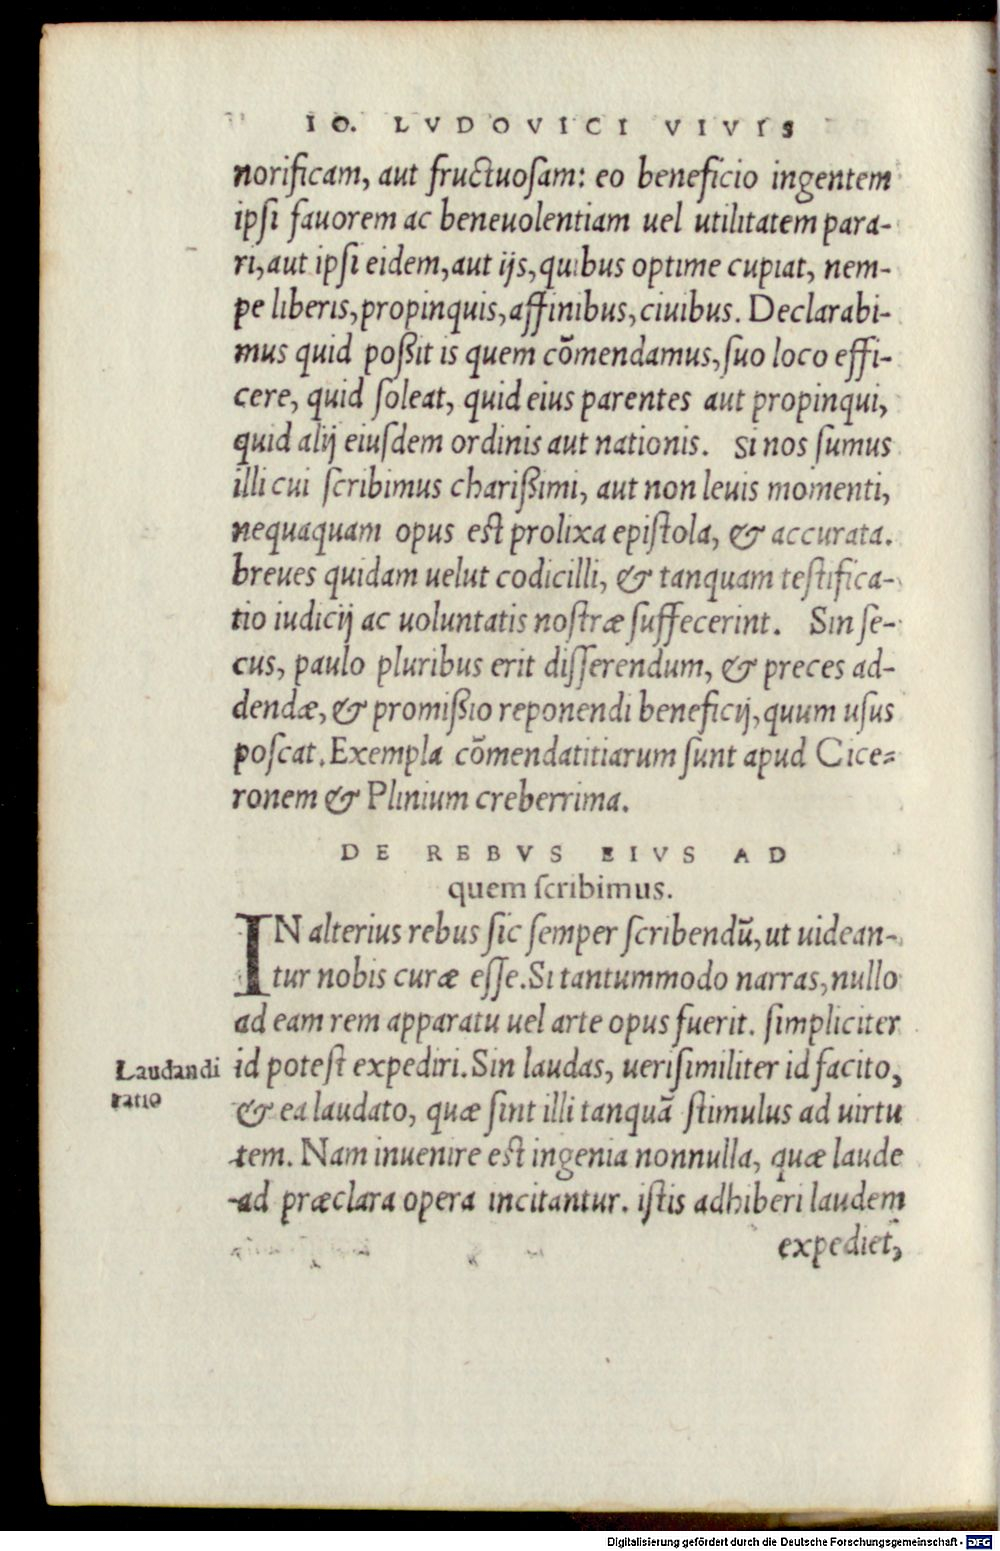 IO. LVDOVICI VIVIS
norificam, aut fructuoſam: eo beneficio ingentem
ipſi fauorem ac beneuolentiam uel utilitatem para-
ri, aut ipſi eidem, aut ijs, quibus optime cupiat, nem-
pe liberis, propinquis, affinibus, ciuibus. Declarabi-
mus quid poßit is quem cōmendamus, ſuo loco effi-
cere, quid ſoleat, quid eius parentes aut propinqui,
quid alij eiuſdem ordinis aut nationis. Si nos ſumus
illi cui ſcribimus charißimi, aut non leuis momenti,
nequaquam opus eſt prolixa epiſtola, & accurata.
breues quidam uelut codicilli, & tanquam teſtifica-
tio iudicij ac uoluntatis noſtræ ſuffecerint. Sin ſe-
cus, paulo pluribus erit diſſerendum, & preces ad-
dendæ, & promißio reponendi beneficij, quum uſus
poſcat. Exempla cōmendatitiarum ſunt apud Cice-
ronem & Plinium creberrima.
DE REBVS EIVS AD
quem ſcribimus.
IN alterius rebus ſic ſemper ſcribendū, ut uidean-
tur nobis curæ eſſe. Si tantummodo narras, nullo
ad eam rem apparatu uel arte opus fuerit. ſimpliciter
Laudandi ratio
id poteſt expediri. Sin laudas, ueriſimiliter id facito,
& ea laudato, quæ ſint illi tanquā ſtimulus ad uirtu
tem. Nam inuenire eſt ingenia nonnulla, quæ laude
ad præclara opera incitantur. iſtis adhiberi laudem
expediet,
Digitalisierung gefördert durch die Deutsche Forschungsgemeinschaft - DFG